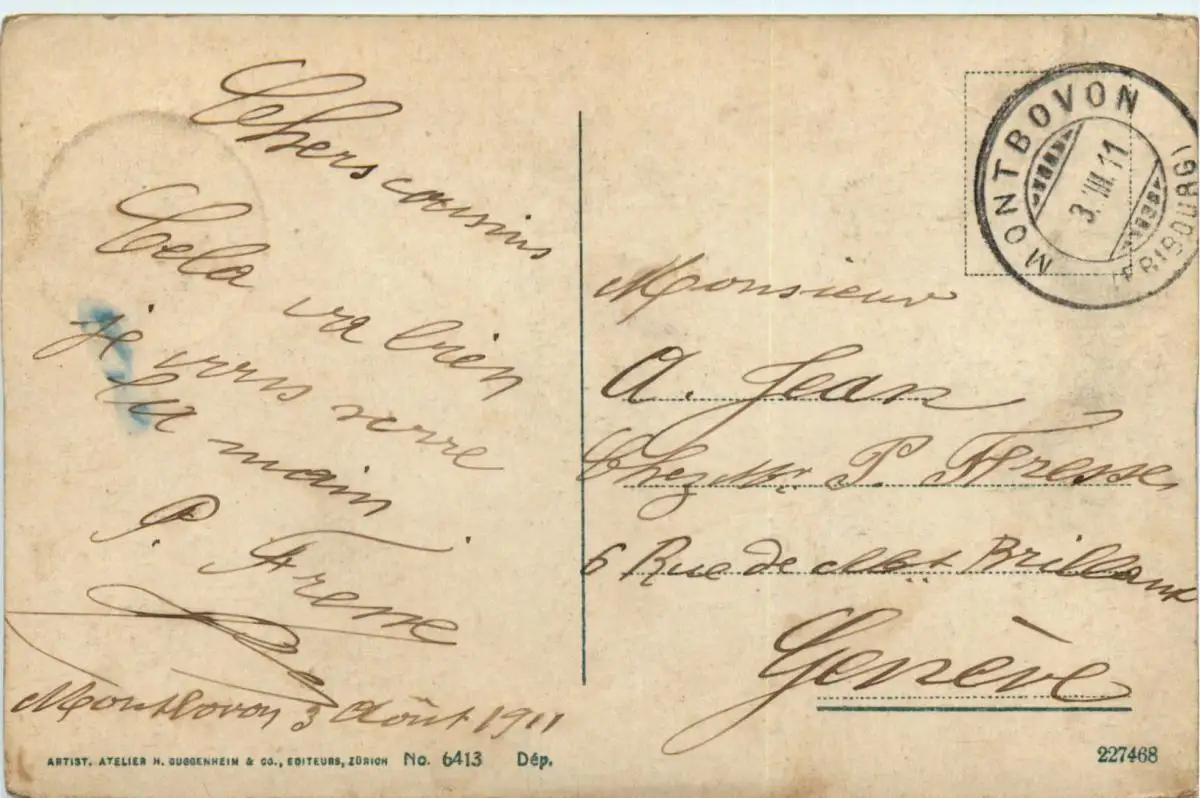 Chers cousins
Cela va bien
je vous serre
la main
P. Fresse
Montbovon 3 Août 1911
MONTBOVON
3.VIII.11
(FRIBOURG)
Monsieur
A. Jean
Chez Mr. P. Fresse
6 Rue de Mt Brillant
Genève
ARTIST. ATELIER H. GUGGENHEIM & CO., EDITEURS, ZÜRICH No. 6413 Dép.
227468